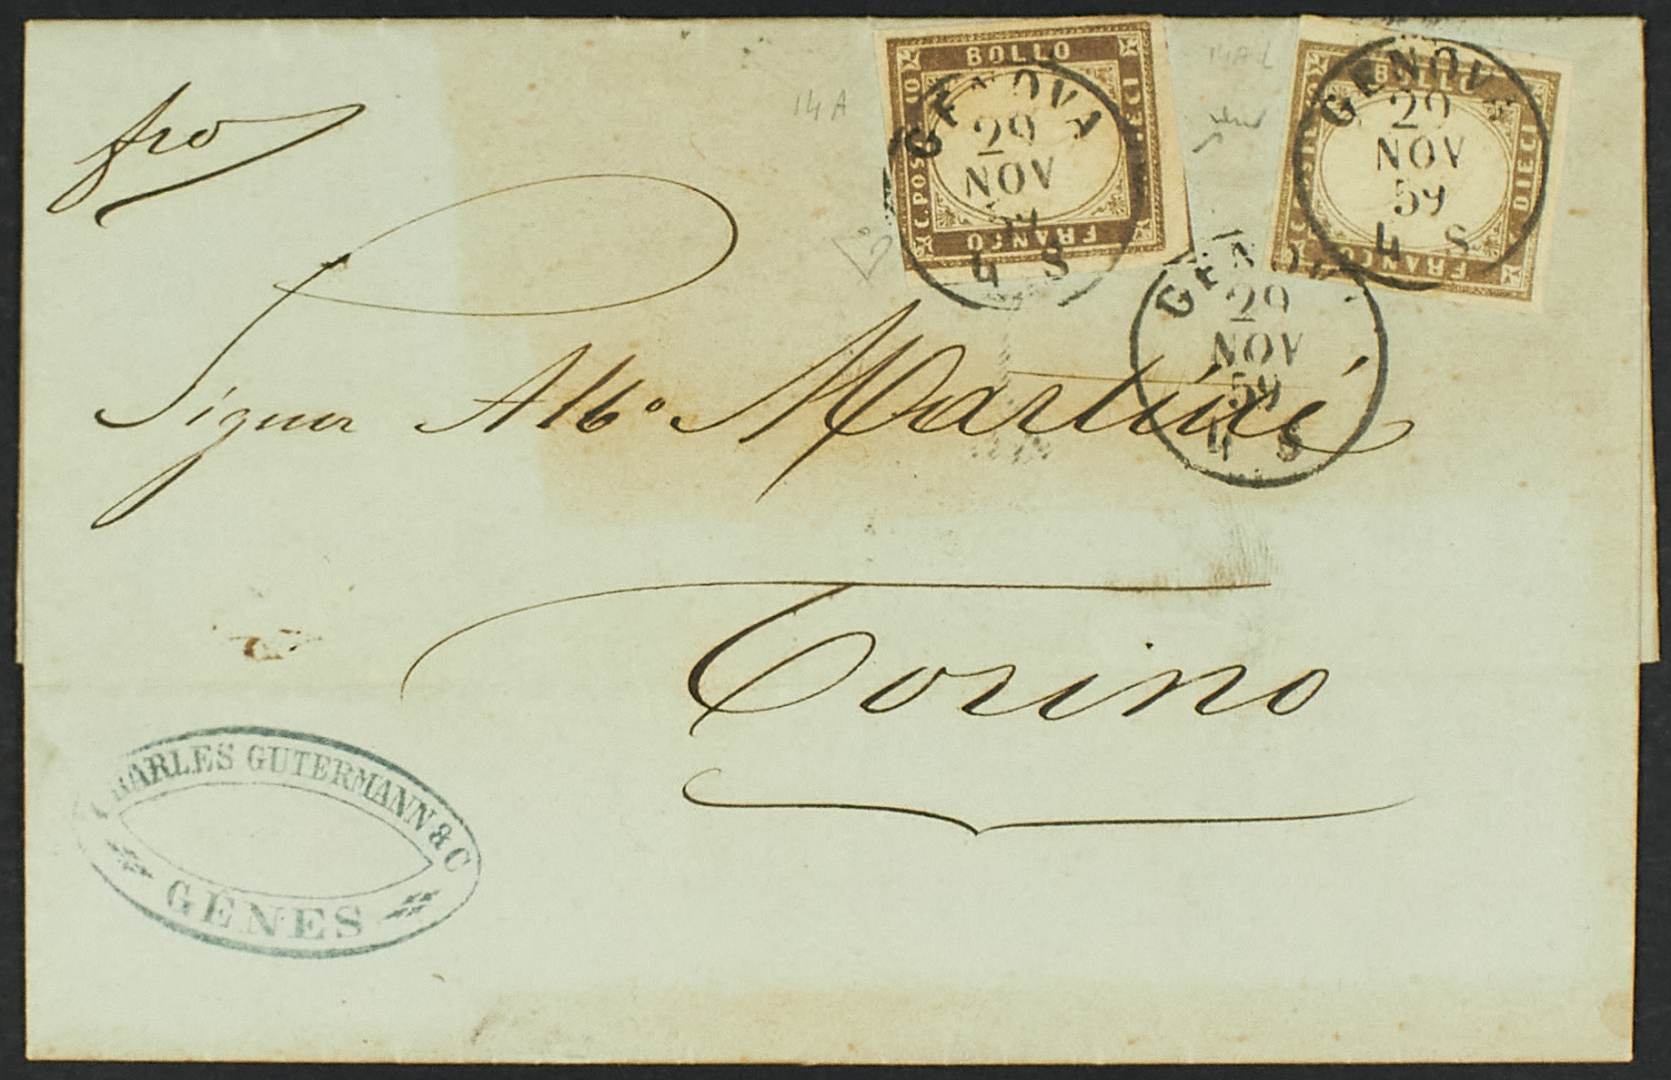 fro
14 A
14 A L
BOLLO
C. POSTE 10
DIECI
FRANCO
GENOVA
29
NOV
59
4 S
BOLLO
DIECI
FRANCO
GENOVA
29
NOV
59
4 S
GENOVA
29
NOV
59
4 S
Signor Alb.o Martini
Torino
CHARLES GUTERMANN & C
GÊNES